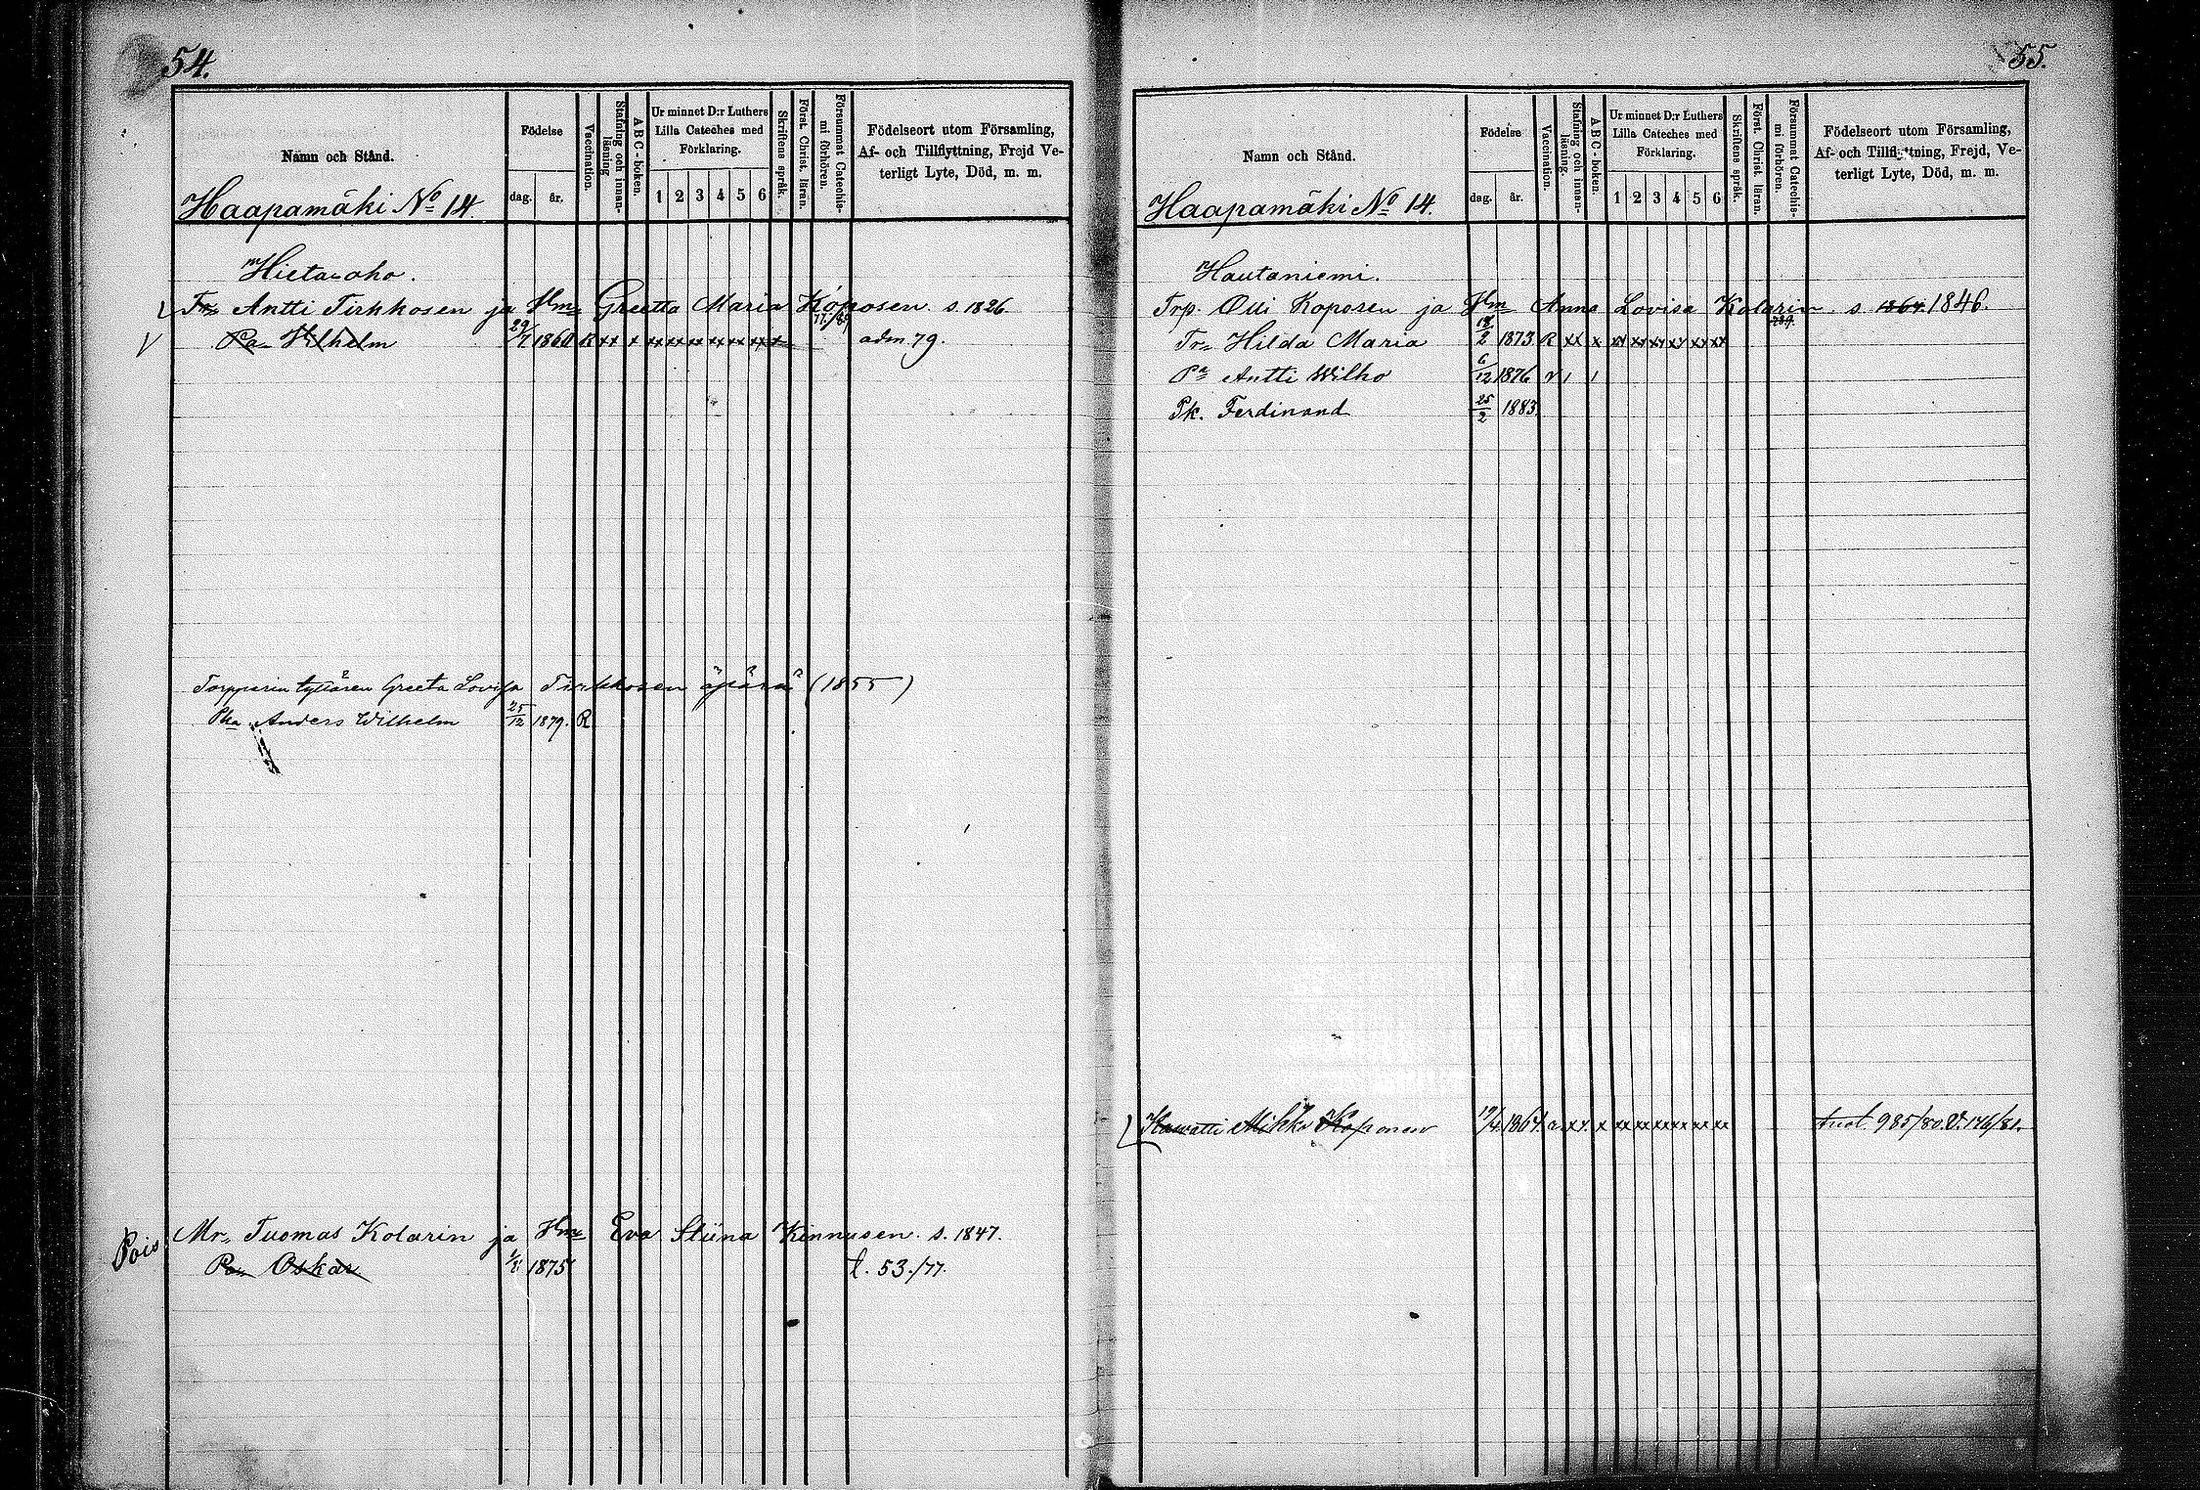 54.
Namn och Stånd.
Födelse
dag.
år.
Vaccination.
Stafning och innan-
läsning
ABC-boken.
Ur minnet D:r Luthers
Lilla Cateches med
Förklaring.
1 2 3 4 5 6
Skriftens språk.
Först. Christ. läran.
Försummat Catechis-
mi förhören.
Födelseort utom Församling,
Af- och Tillflyttning, Frejd Ve-
terligt Lyte, Död, m. m.
Haapamäki No 14
Hieta-aho.
Antti Tirkkosen ja Hm Greetta Maria Koposen s. 1826.
Pa Wilhelm 29/7 1860 R xx x xx xx xx xx xx xx adm. 79.
Torpparin tyttären Greeta Lovisa Tirkkosen äpärä (1855)
Pka Anders Wilhelm 25/12 1879. R
Pois
Mr Tuomas Kolarin ja Hm Eva Stiina Kinnusen. s. 1847.
Pa Oskar 1875 l. 53./77.
55.
Namn och Stånd.
Födelse
dag.
år.
Vaccination.
Stafning och innan-
läsning.
ABC-boken.
Ur minnet D:r Luthers
Lilla Cateches med
Förklaring.
1 2 3 4 5 6
Skriftens språk.
Först. Christ. läran.
Försummat Catechis-
mi förhören.
Födelseort utom Församling,
Af- och Tillflyttning, Frejd, Ve-
terligt Lyte, Död, m. m.
Haapamäki No 14.
Hautaniemi.
Trp. Olli Koposen ja Hm Anna Lovisa Kolarin s. 1864. 1846.
Tr Hilda Maria 2 1873 R xx x xx xx xx xx xx xx
Pa Antti Wilho 6/12 1876 v 1 1
Pk. Ferdinand 25/2 1883
Mikko Koponen 19/4 1864. a xx. x xx xx xx xx xx xx tuol. 985/80. V. 146/81.